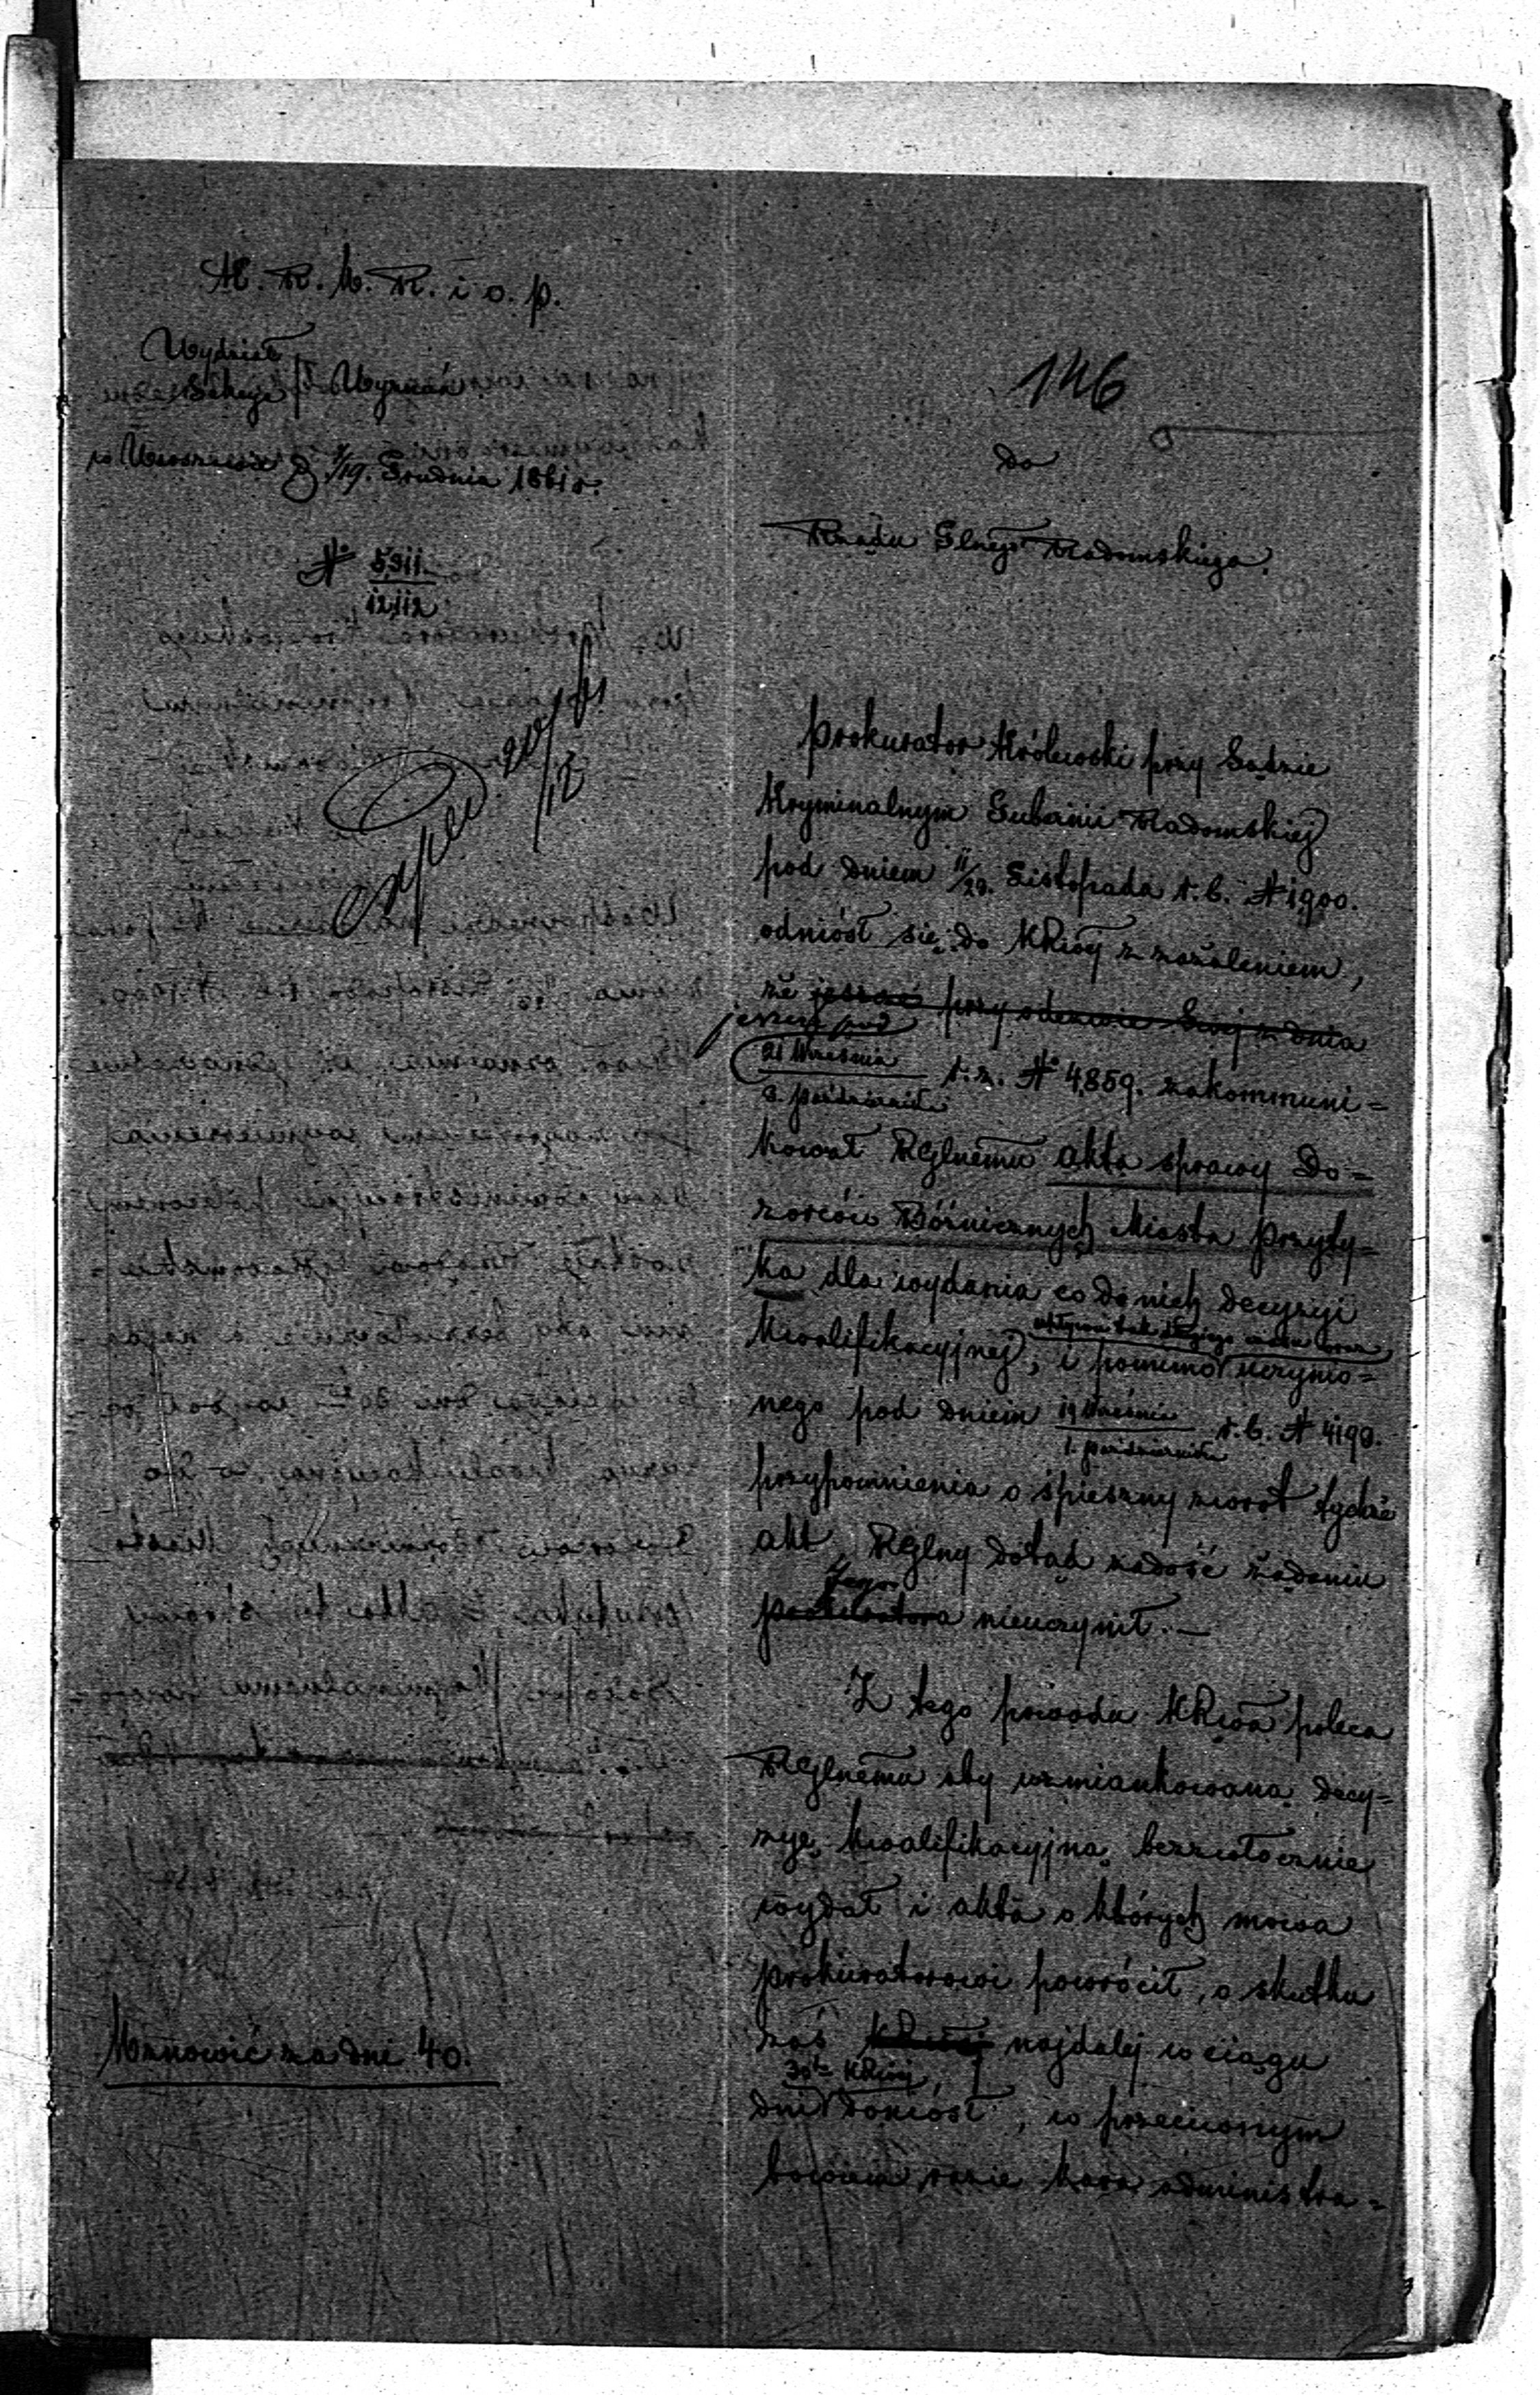 K. R. S. W. i D. P.
Wydział
Sekcja Wyznań
w Warszawie d. 7/19. Grudnia 1861 r.
N° 5911
12,112
20/12 61
Wznowić za dni 40.
146
do
Rządu Glnego Radomskiego.
Prokurator Królewski przy Sądzie
Kryminalnym Gubernii Radomskiej
pod dniem 11/23. Listopada r. b. N 1900.
odniósł się do KRwej z zażaleniem,
że jeszcze przy odezwie Swej z dnia
jeszcze pod
21 Września
3. Października r. z. N° 4,859. zakommuni=
kował RGlnemu akta sprawy Do=
zorców Bóżnicznych Miasta Przyty=
ka dla wydania co do nich decyzyi
upływu tak długiego czasu oraz
kwalifikacyjnej, i pomimo uczynio=
nego pod dniem 19 Września
1. Października r. b. N 4190.
przypomnienia o śpieszny zwrot tychże
akt, RGlny dotąd zadość żądaniu
Jego
prokuratora nieuczynił. —
Z tego powodu KRwa poleca
RGlnemu aby wzmiankowaną decy=
zyę kwalifikacyjną bezzwłocznie
wydał i akta o których mowa
prokuratorowi powrócił, o skutku
zaś KRwej najdalej w ciągu
30tu KRwej
dni doniósł, w przeciwnym
bowiem razie kara administra=